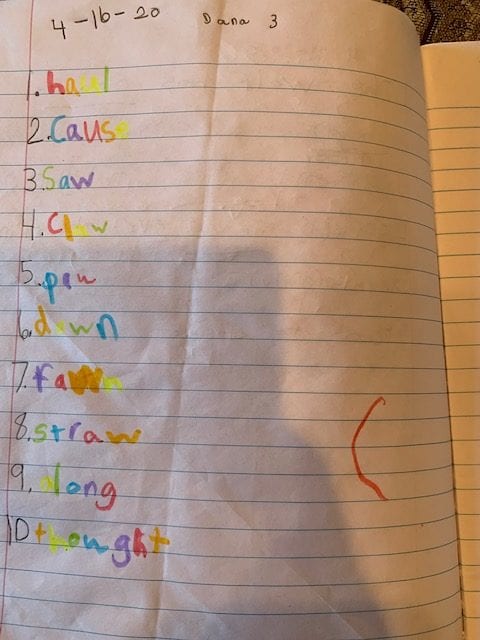 4-16-20 Dana 3
1. haul
2. Cause
3. Saw
4. Claw
5. paw
6. dawn
7. fawn
8. straw
9. along
10 thought